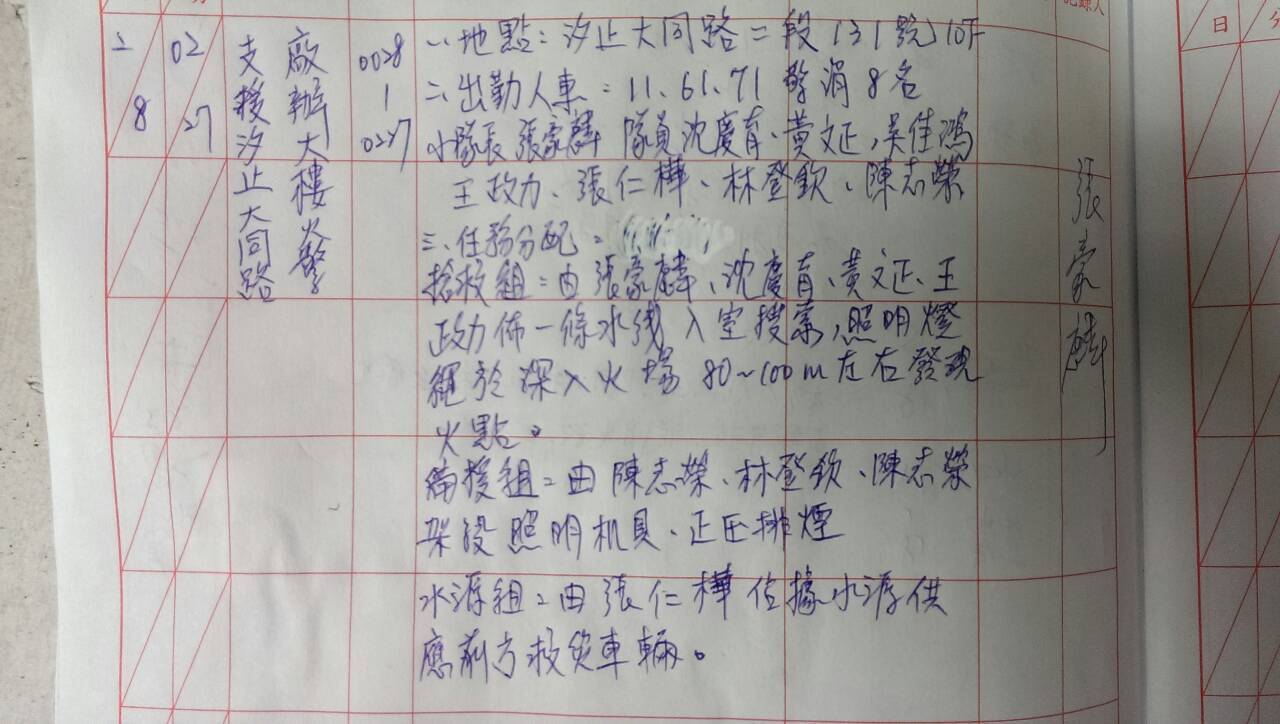 記錄人
日
分
2
8
02
27
支援汐止大同路
廠辦大樓火警
0028
|
0227
一、地點:汐止大同路二段131號10F
二、出勤人車:11、61、71 警消8名
小隊長張豪麟 隊員沈慶育、黃文正、吳佳鴻
王政力、張仁樺、林登欽、陳志榮
三、任務分配:
搶救組:由張豪麟、沈慶育、黃文正、王
政力佈一條水线入室搜索,照明燈
繩於深入火場80~100m左右發現
火點。
備援組:由陳志榮、林登欽、陳志榮
架設照明机具、正压排煙
水源組:由張仁樺佔據水源供
應前方救災車輛。
張豪麟